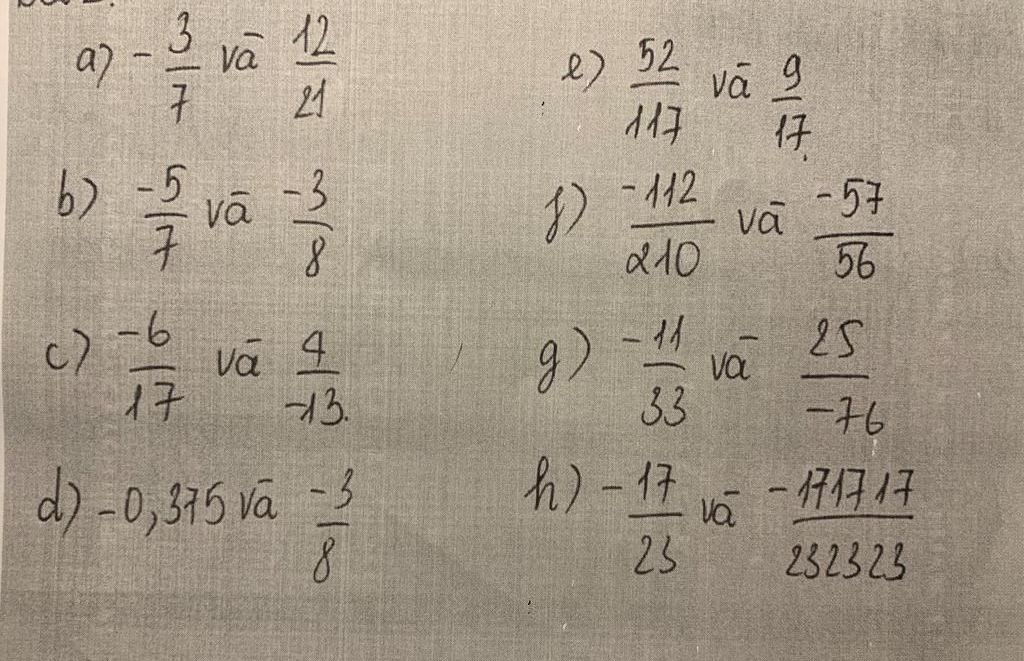 a) - 3/7 và 12/21
b) -5/7 và -3/8
c) -6/17 và 4/-13.
d) -0,375 và -3/8
e) 52/117 và 9/17.
f) -112/210 và -57/56
g) -11/33 và 25/-76
h) -17/23 và -171717/232323